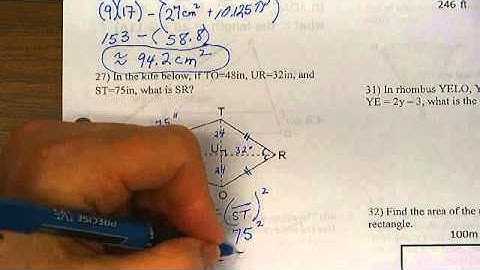 (9)(17) - (27cm² + 10.125π)
153 - (58.8)
≈ 94.2cm²
246 ft
27) In the kite below, if TO=48in, UR=32in, and
ST=75in, what is SR?
31) In rhombus YELO, Y
YE = 2y – 3, what is the
T
75"
24
U
32"
R
24
O
(ST)²
75²
32) Find the area of the
rectangle.
100m
PRECISE V5